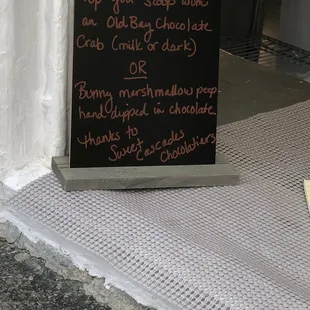 Top your scoop with
an Old Bay Chocolate
Crab (milk or dark)
OR
Bunny marshmallow peep
hand-dipped in chocolate.
thanks to
Sweet Cascades
Chocolatiers